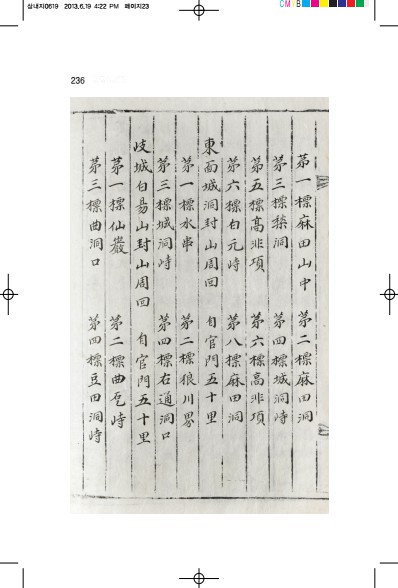 삼내지0619 2013.6.19 4:22 PM 페이지23
CM B
236
第一標麻田山中 第二標麻田洞
第三標蔾洞 第四標城洞峙
第五標高非項 第六標高非項
第六標白元峙 第八標麻田洞
東面城洞封山周回 自官門五十里
第一標水串 第二標狼川界
第三標城洞峙 第四標右通洞口
岐城白昜山封山周回 自官門五十里
第一標仙巖 第二標曲乭峙
第三標曲洞口 第四標豆田洞峙